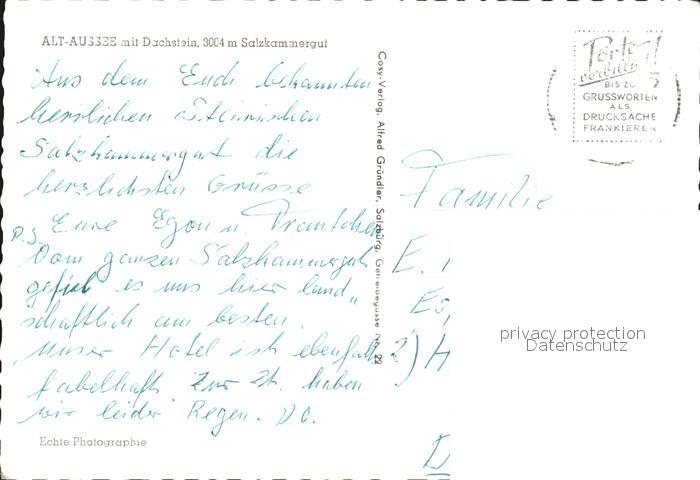 ALT-AUSSEE mit Dachstein, 3004 m Salzkammergut
Aus dem Euch bekannten
herrlichen Steirischen
Salzkammergut die
herzlichsten Grüsse
Eure Egon u. Trautchen
P.S.
Vom ganzen Salzkammergut
gefiel es uns hier land„
schaftlich am besten.
Unser Hotel ist ebenfalls
fabelhaft. Zur Zt. haben
wir leider Regen. D O.
Echte Photographie
Cosy-Verlag, Alfred Gründler, Salzburg, Getreidegasse Nr. 22
Porto
verbilligt
BIS ZU 5
GRUSSWORTEN
ALS
DRUCKSACHE
FRANKIEREN
Familie
E.
Es
2) H
D
privacy protection
Datenschutz